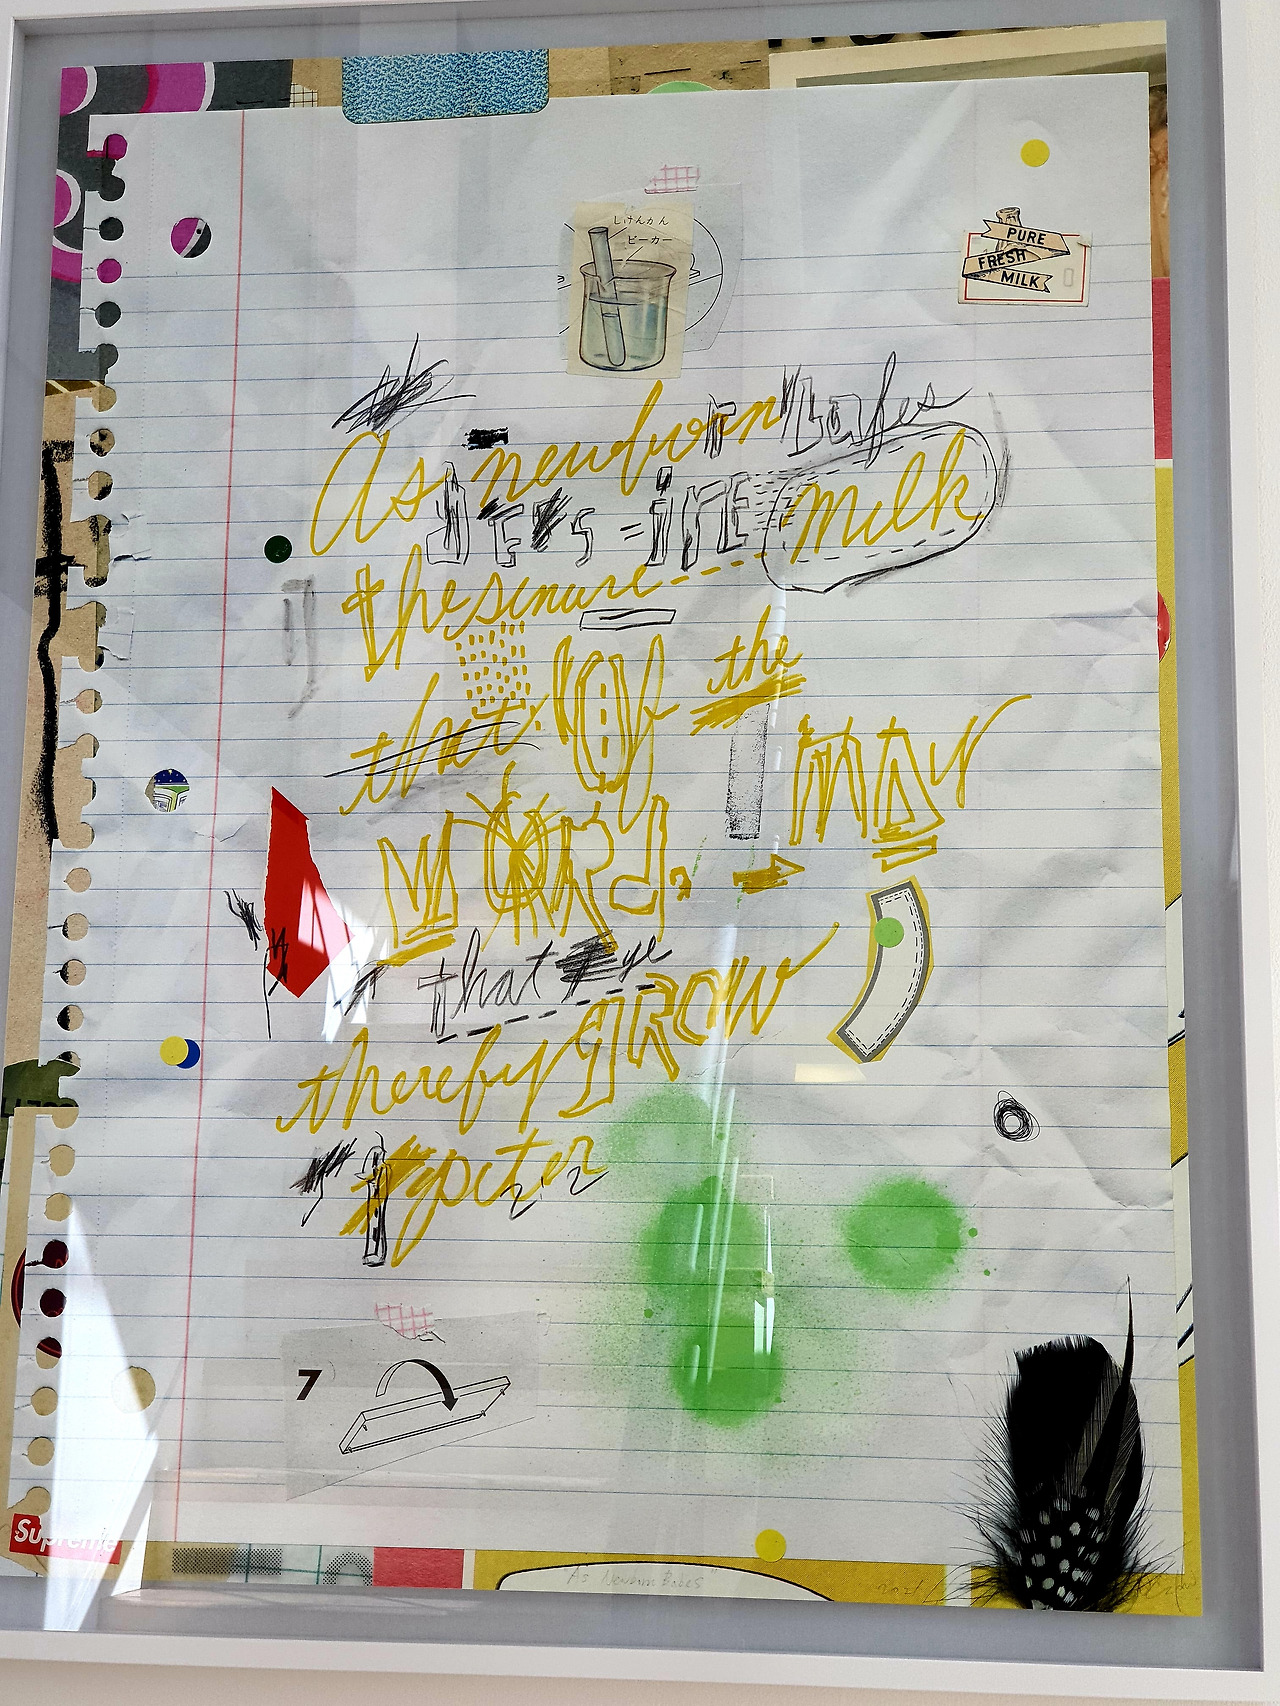 しけんかん
ビーカー
PURE
FRESH
MILK
As newborn babes
milk
the
that of the
word, may
that ye
thereby grow
7
Supreme
"As Newborn Babes"
2021